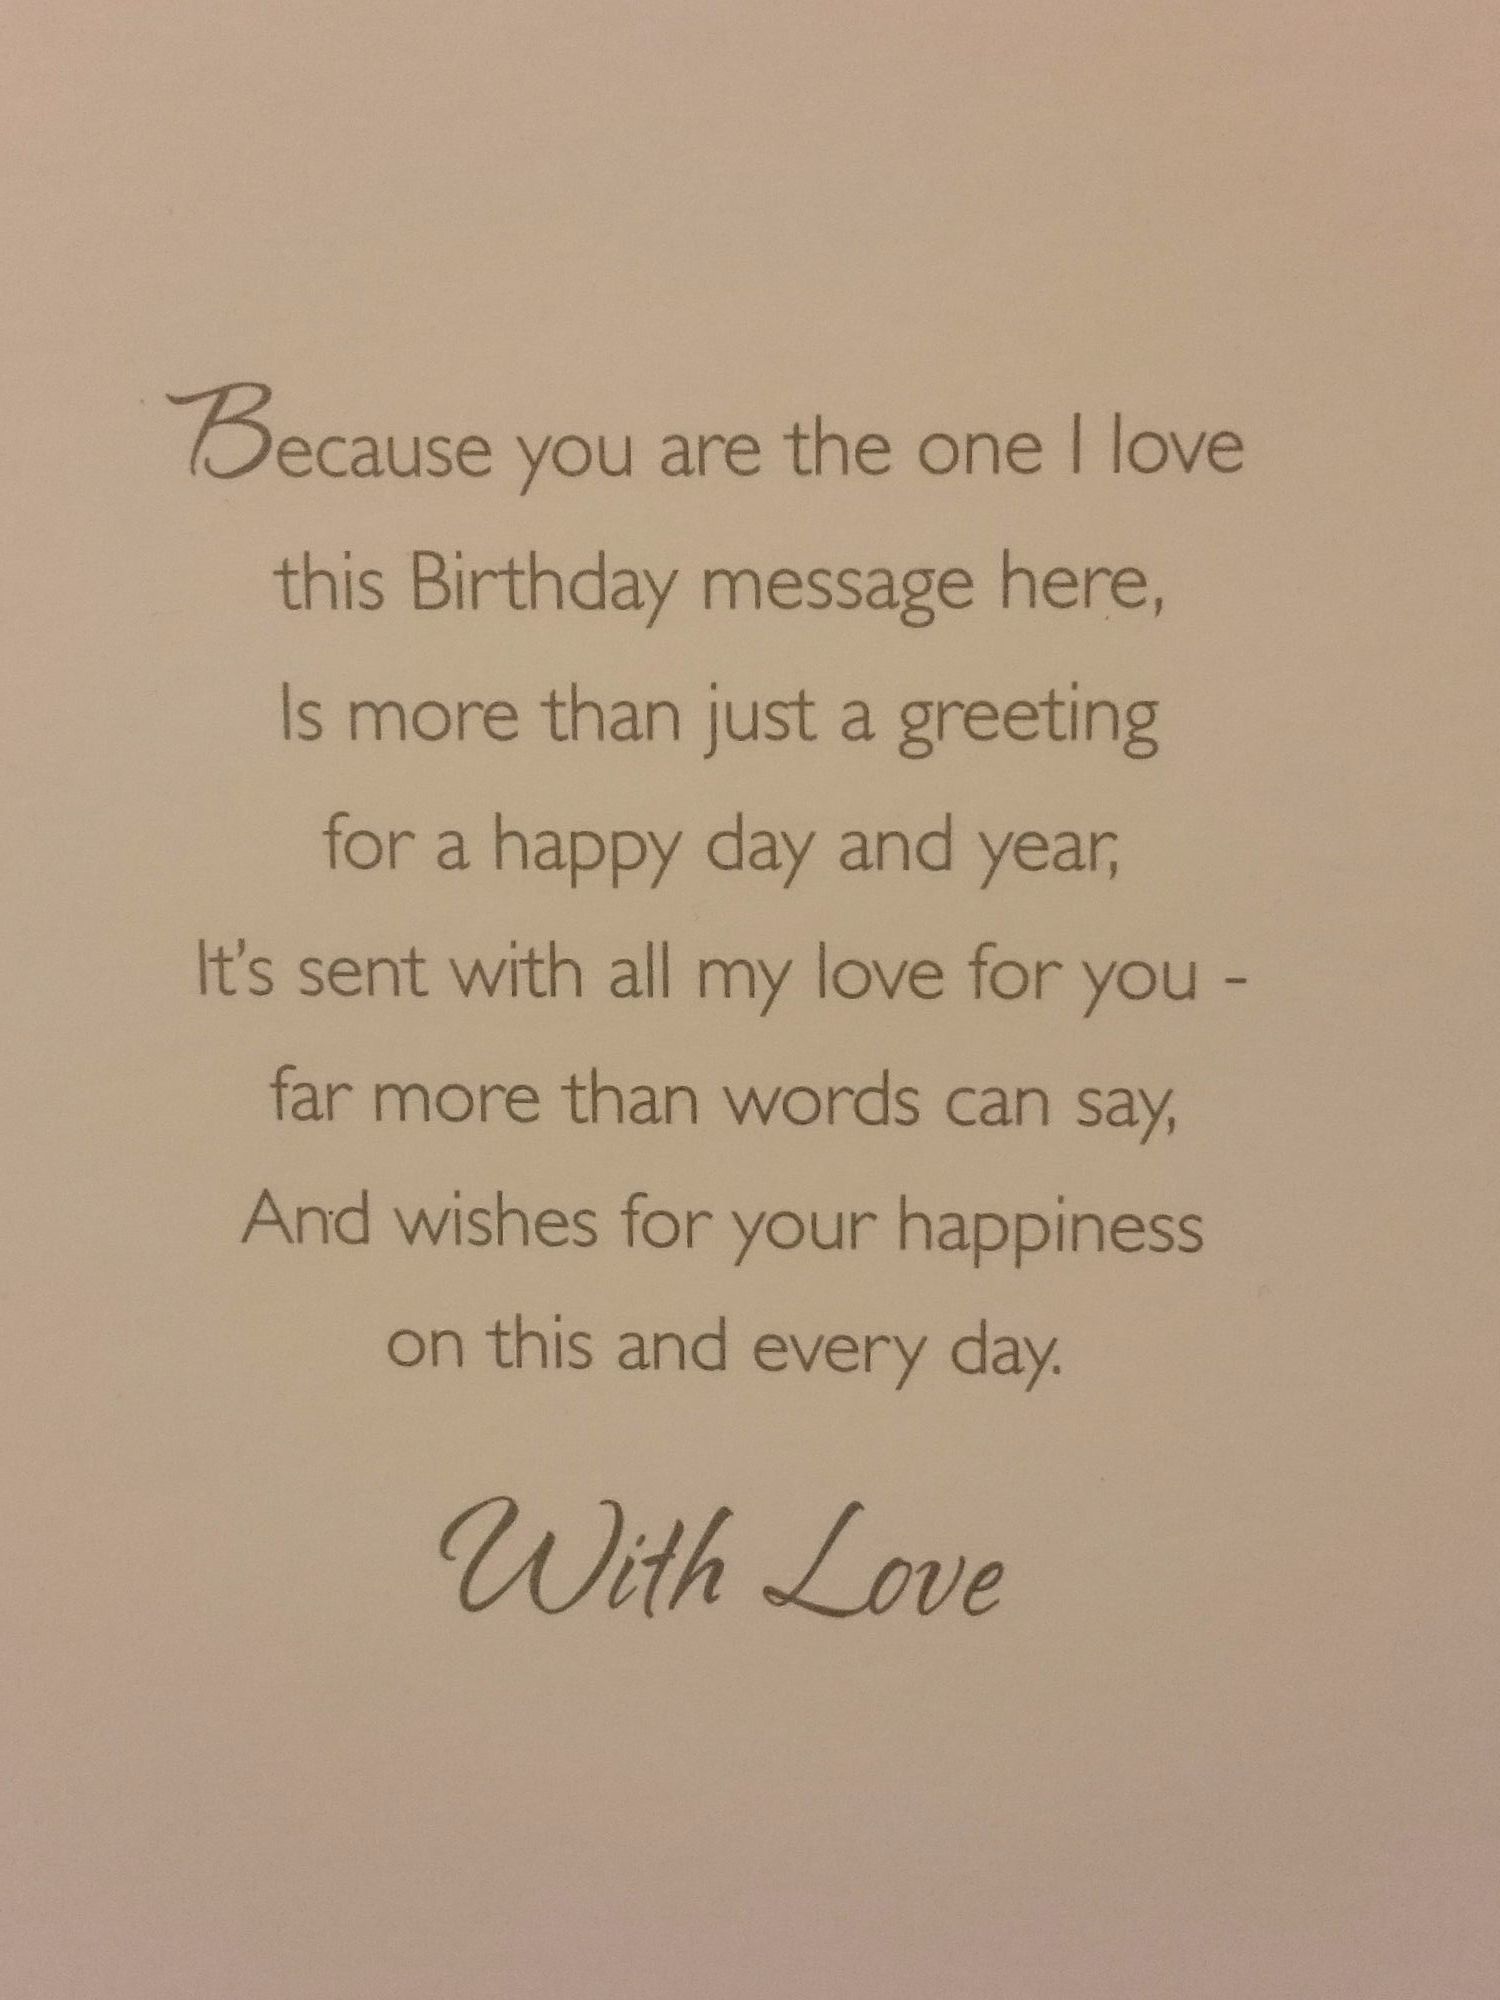 Because you are the one I love
this Birthday message here,
Is more than just a greeting
for a happy day and year,
It's sent with all my love for you -
far more than words can say,
And wishes for your happiness
on this and every day.
With Love